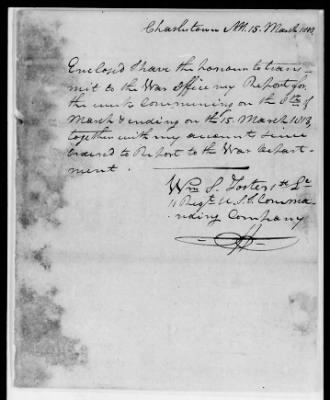 Charlestown NH. 15. March 1813
Enclosed I have the honour to trans,
mit to the War Office my Report for
the week Commencing on the 8th of
March & ending on the 15. March 1813,
together with my account since
to Report to the War Depart-
ment.
Wm S. Foster 1st Lt
11 Regt. U.S.I. Comma
nding Company